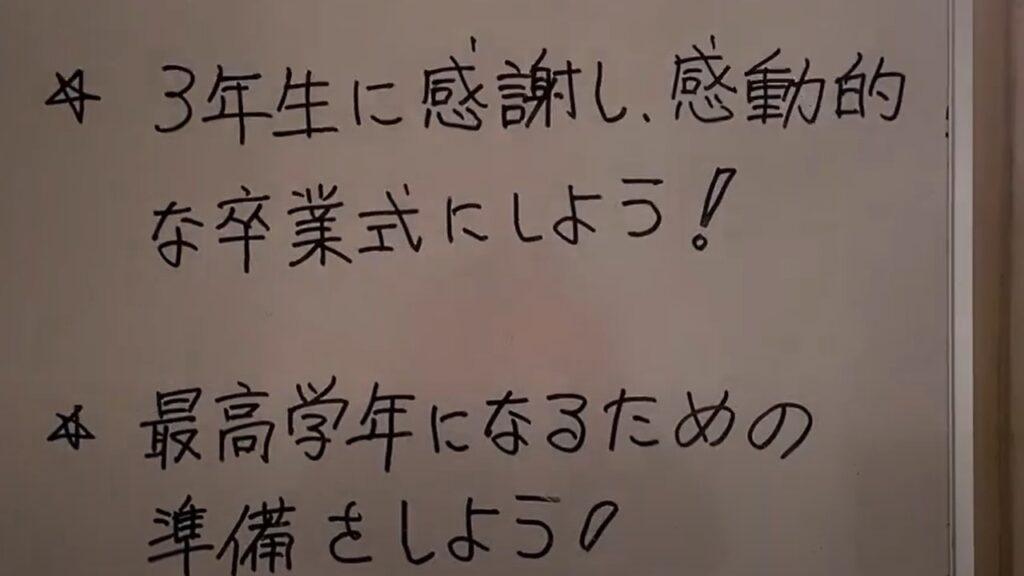 ☆ 3年生に感謝し、感動的
な卒業式にしよう!
☆ 最高学年になるための
準備をしよう!